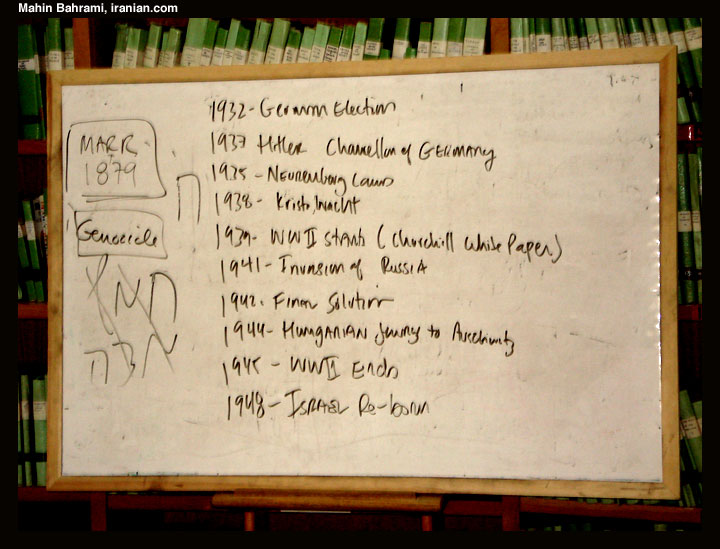 Mahin Bahrami, iranian.com
MARR
1879
Genocide
1932 - German Election
1937 Hitler Chancellor of GERMANY
1935 - Neurenberg Laws
1938 - Kristolnacht
1939 - WWII starts (Churchill White Paper)
1941 - Invasion of Russia
1942 - Final Solution
1944 - Hungarian Jewry to Auschwitz
1945 - WWII Ends
1948 - ISRAEL Re-born